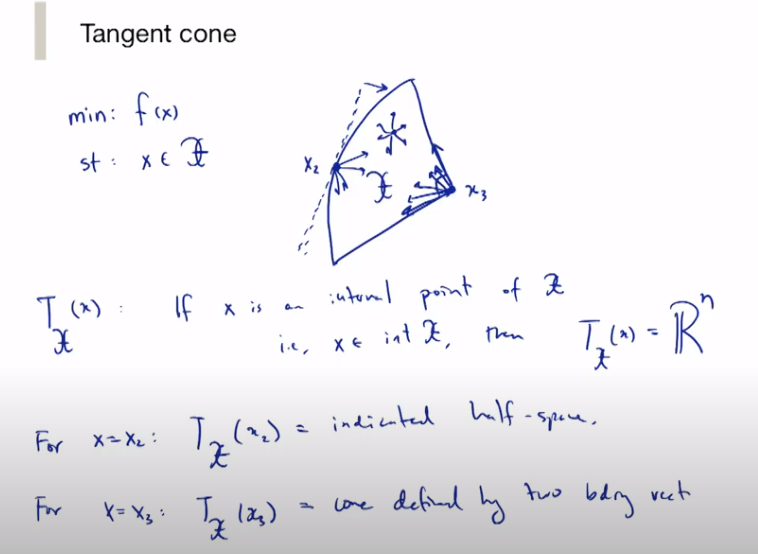 Tangent cone
min: f(x)
st: x ∈ 𝓕
x₂
𝓕
x₃
T_𝓕(x): If x is an internal point of 𝓕
i.e, x ∈ int 𝓕, then T_𝓕(x) = ℝⁿ
For x=x₂: T_𝓕(x₂) = indicated half-space.
For x=x₃: T_𝓕(x₃) = cone defined by two bdry vect